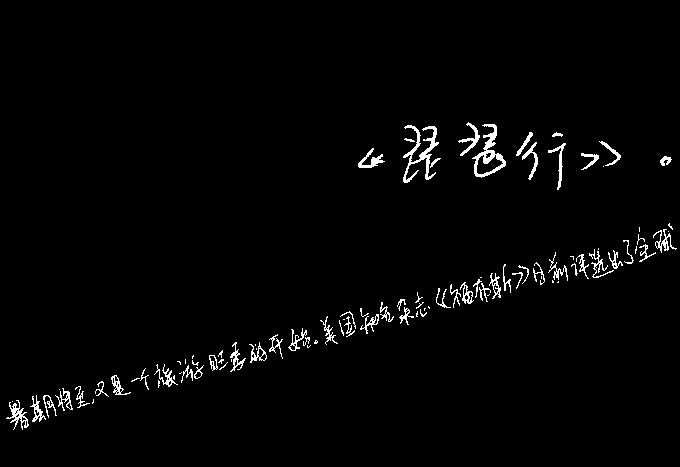 《琵琶行》。
暑期将至,又是一个旅游旺季的开始。美国知名杂志《福布斯》日前评选出了全球